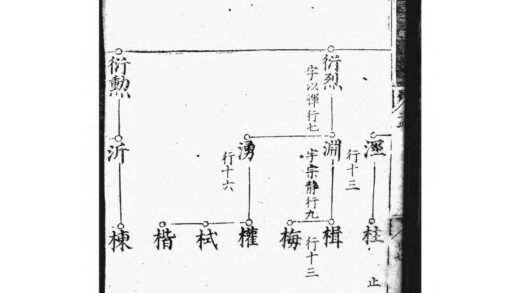 衍烈
字以渾行七
衍勳
行十三
淵
字宗靜行九
湧
行十六
沂
柱
止
楫
行十三
梅
權
栻
楷
棟